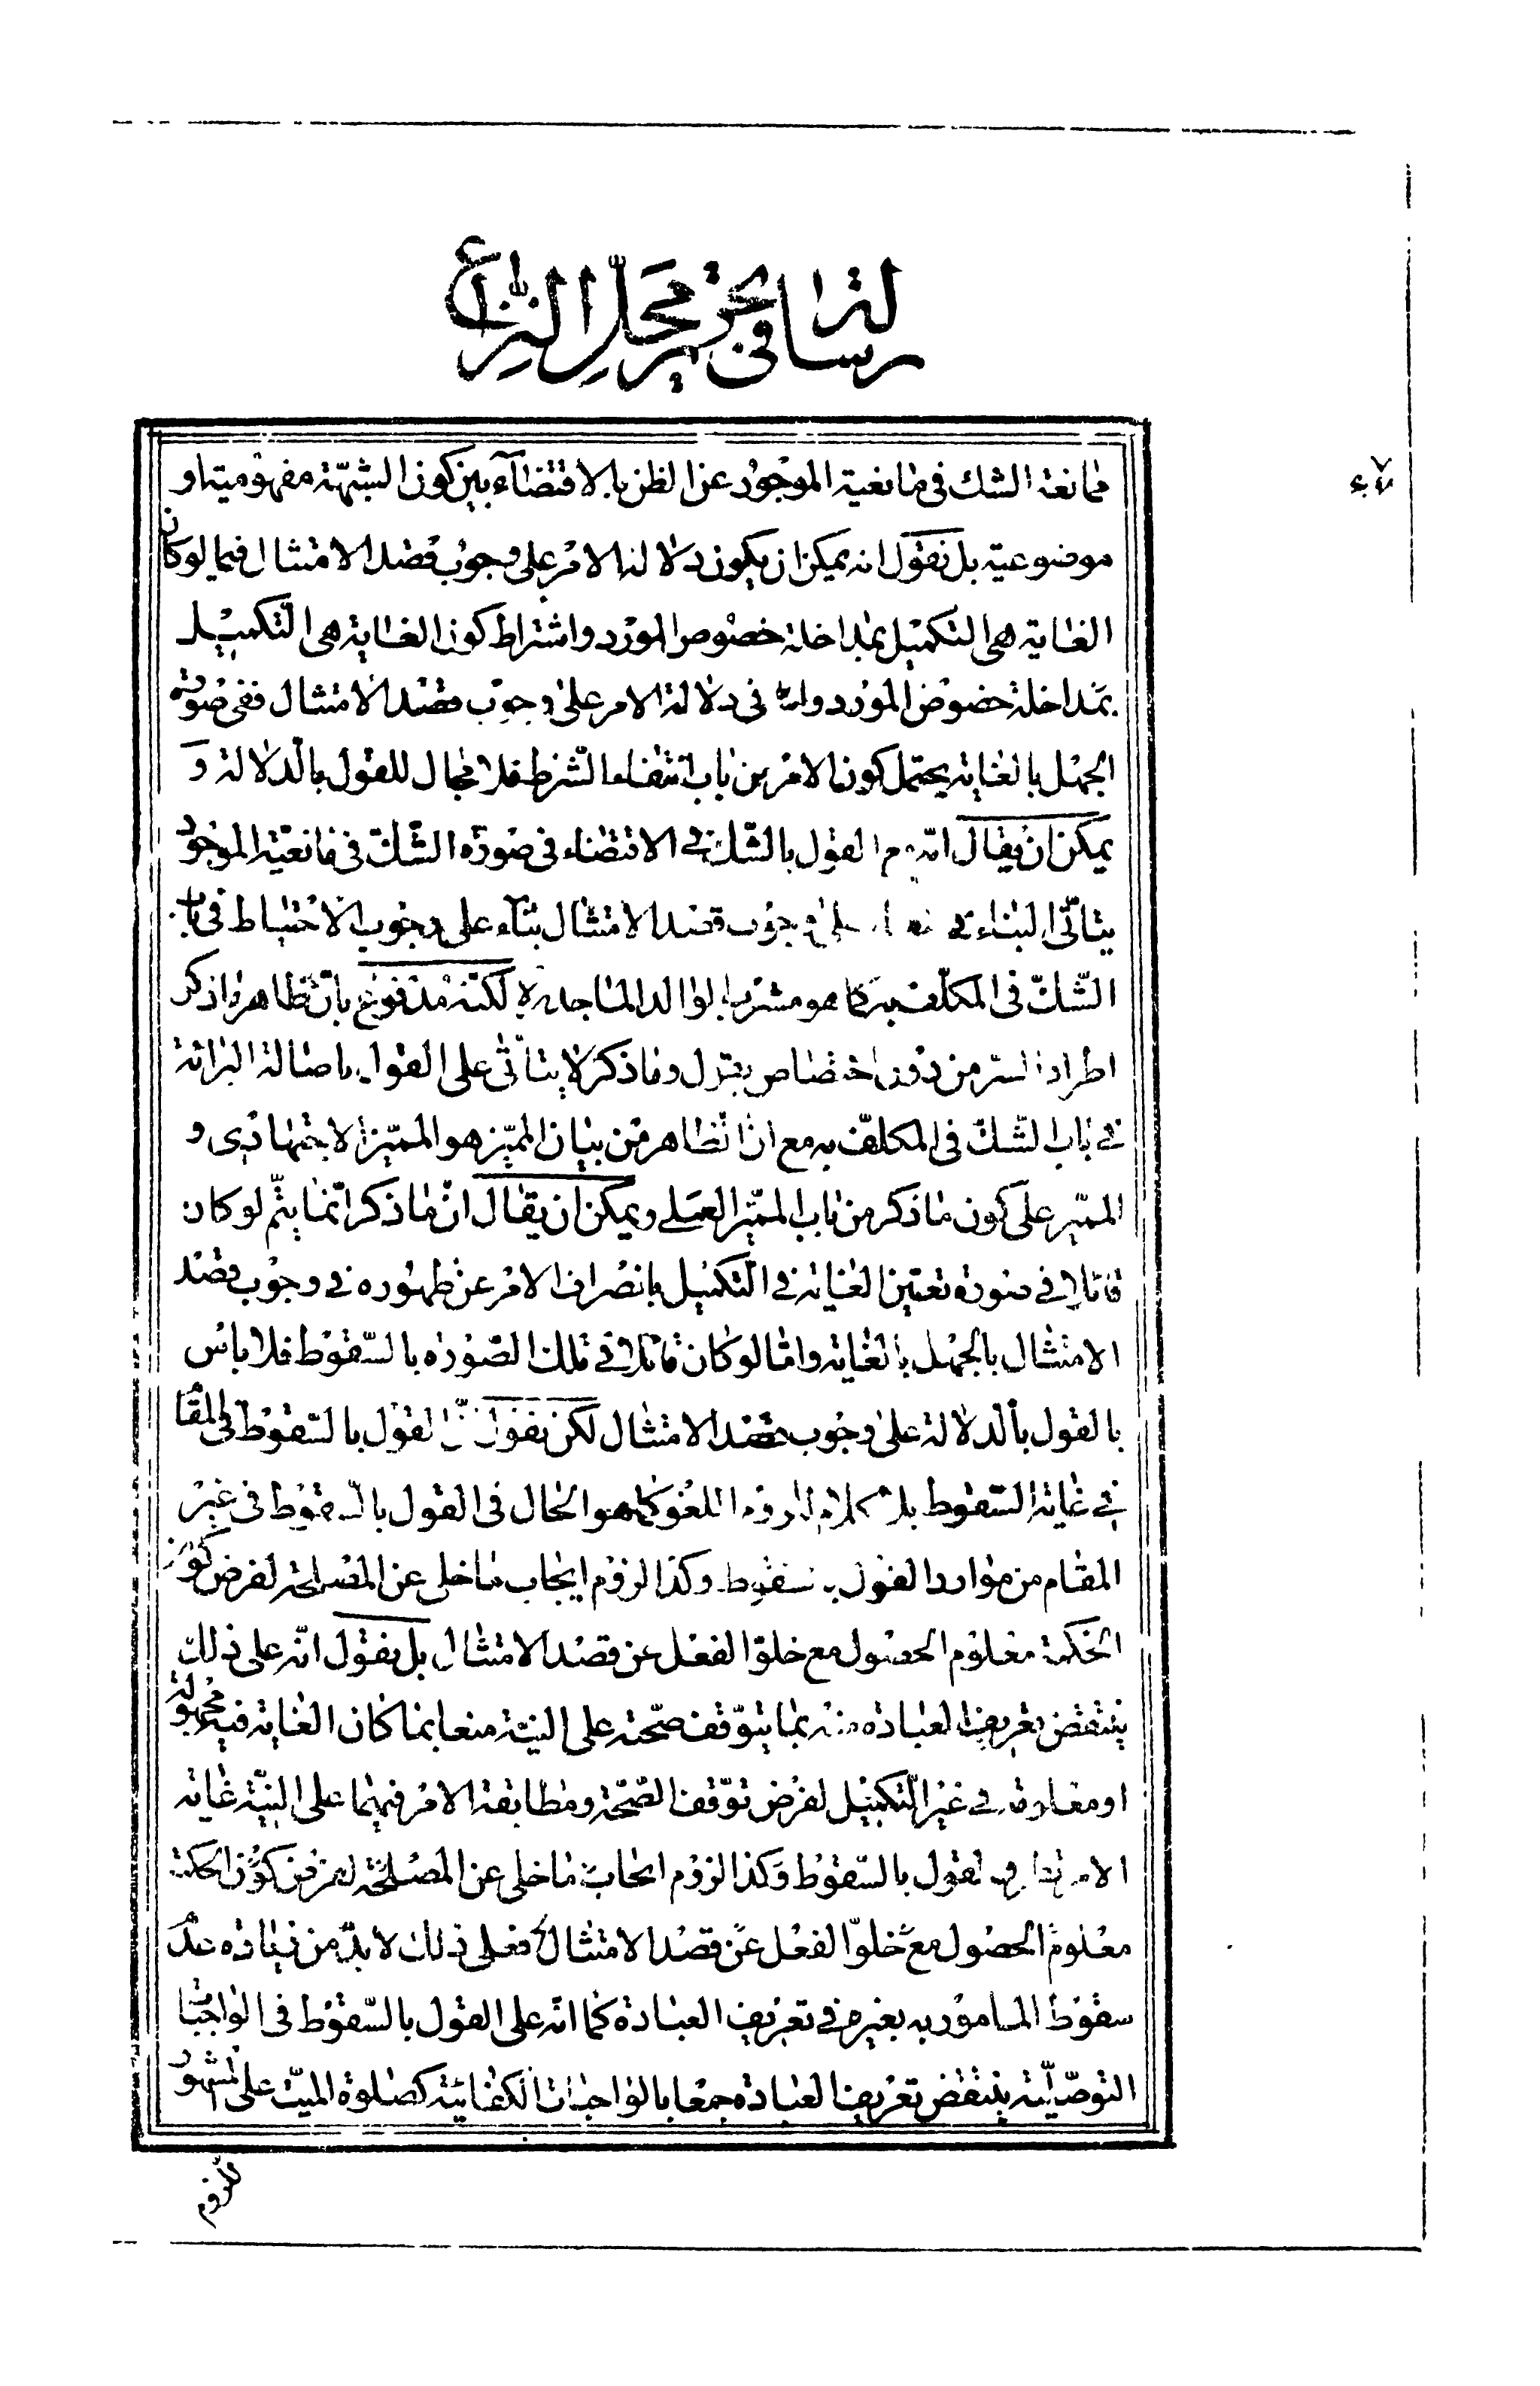 رسالة في تحرير محل النزاع
ممانعة الشك في مانعية الموجود عن الظن بالاقتضاء بين كون الشبهة مفهومية او
موضوعية بل نقول انه يمكن ان يكون دلالة الامر على وجوب قصد الامتثال فيما لو كان
الغاية هى التكميل بمداخلة خصوص المورد واشتراط كون الغاية هى التكميل
بمداخلة خصوص المورد في دلالة الامر على وجوب قصد الامتثال ففى صورة
الجهل بالغاية يحتمل كون الامر من باب انتفاء الشرط فلا مجال للقول بالدلالة و
يمكن ان يقال انه القول بالشك في الاقتضاء في صورة الشك في مانعية الموجود
يتاتى البناء وجوب قصد الامتثال بناء على وجوب الاحتياط في باب
الشك في المكلف به كما هو مشرب الوالد الماجد ره لكنه مدفوع بان ظاهر ما ذكر
اطراد من دون اختصاص وما ذكر لا يتاتى على القول باصالة البرائة
في باب الشك في المكلف به مع ان الظاهر من بيان المميز هو المميز الاجتهادى و
المميز على كون ما ذكر من باب المميز العملي ويمكن ان يقال ان ما ذكر انما يتم لو كان
قائلا في صورة تعين الغاية في التكميل بانصراف الامر عن ظهوره في وجوب قصد
الامتثال بالجهل بالغاية واما لو كان قائلا في تلك الصورة بالسقوط فلا باس
بالقول بالدلالة على وجوب قصد الامتثال لكن نقول ان القول بالسقوط في المقام
في غاية السقوط بلا كلام للزوم اللغو كما هو الحال في القول بالسقوط في غير
المقام من موارد القول بالسقوط وكذا لزوم ايجاب ما خلى عن المصلحة لفرض كون
الحكمة معلوم الحصول مع خلو الفعل عن قصد الامتثال بل نقول انه على ذلك
ينتقض تعريف العبادة بما يتوقف صحته على النية منعا بما كان الغاية فيه مجهولة
او معلومة في غير التكميل لفرض توقف الصحة ومطابقة الامر فيهما على النية غاية
الامر القول بالسقوط وكذا لزوم ايجاب ما خلى عن المصلحة لفرض كون الحكمة
معلوم الحصول مع خلو الفعل عن قصد الامتثال فعلى ذلك لا بد من زيادة عدم
سقوط المامور به بغيره في تعريف العبادة كما انه على القول بالسقوط في الواجبات
التوصلية ينتقض تعريف العبادة جمعا بالواجبات الكفائية كصلوة الميت على المشهور
للزوم